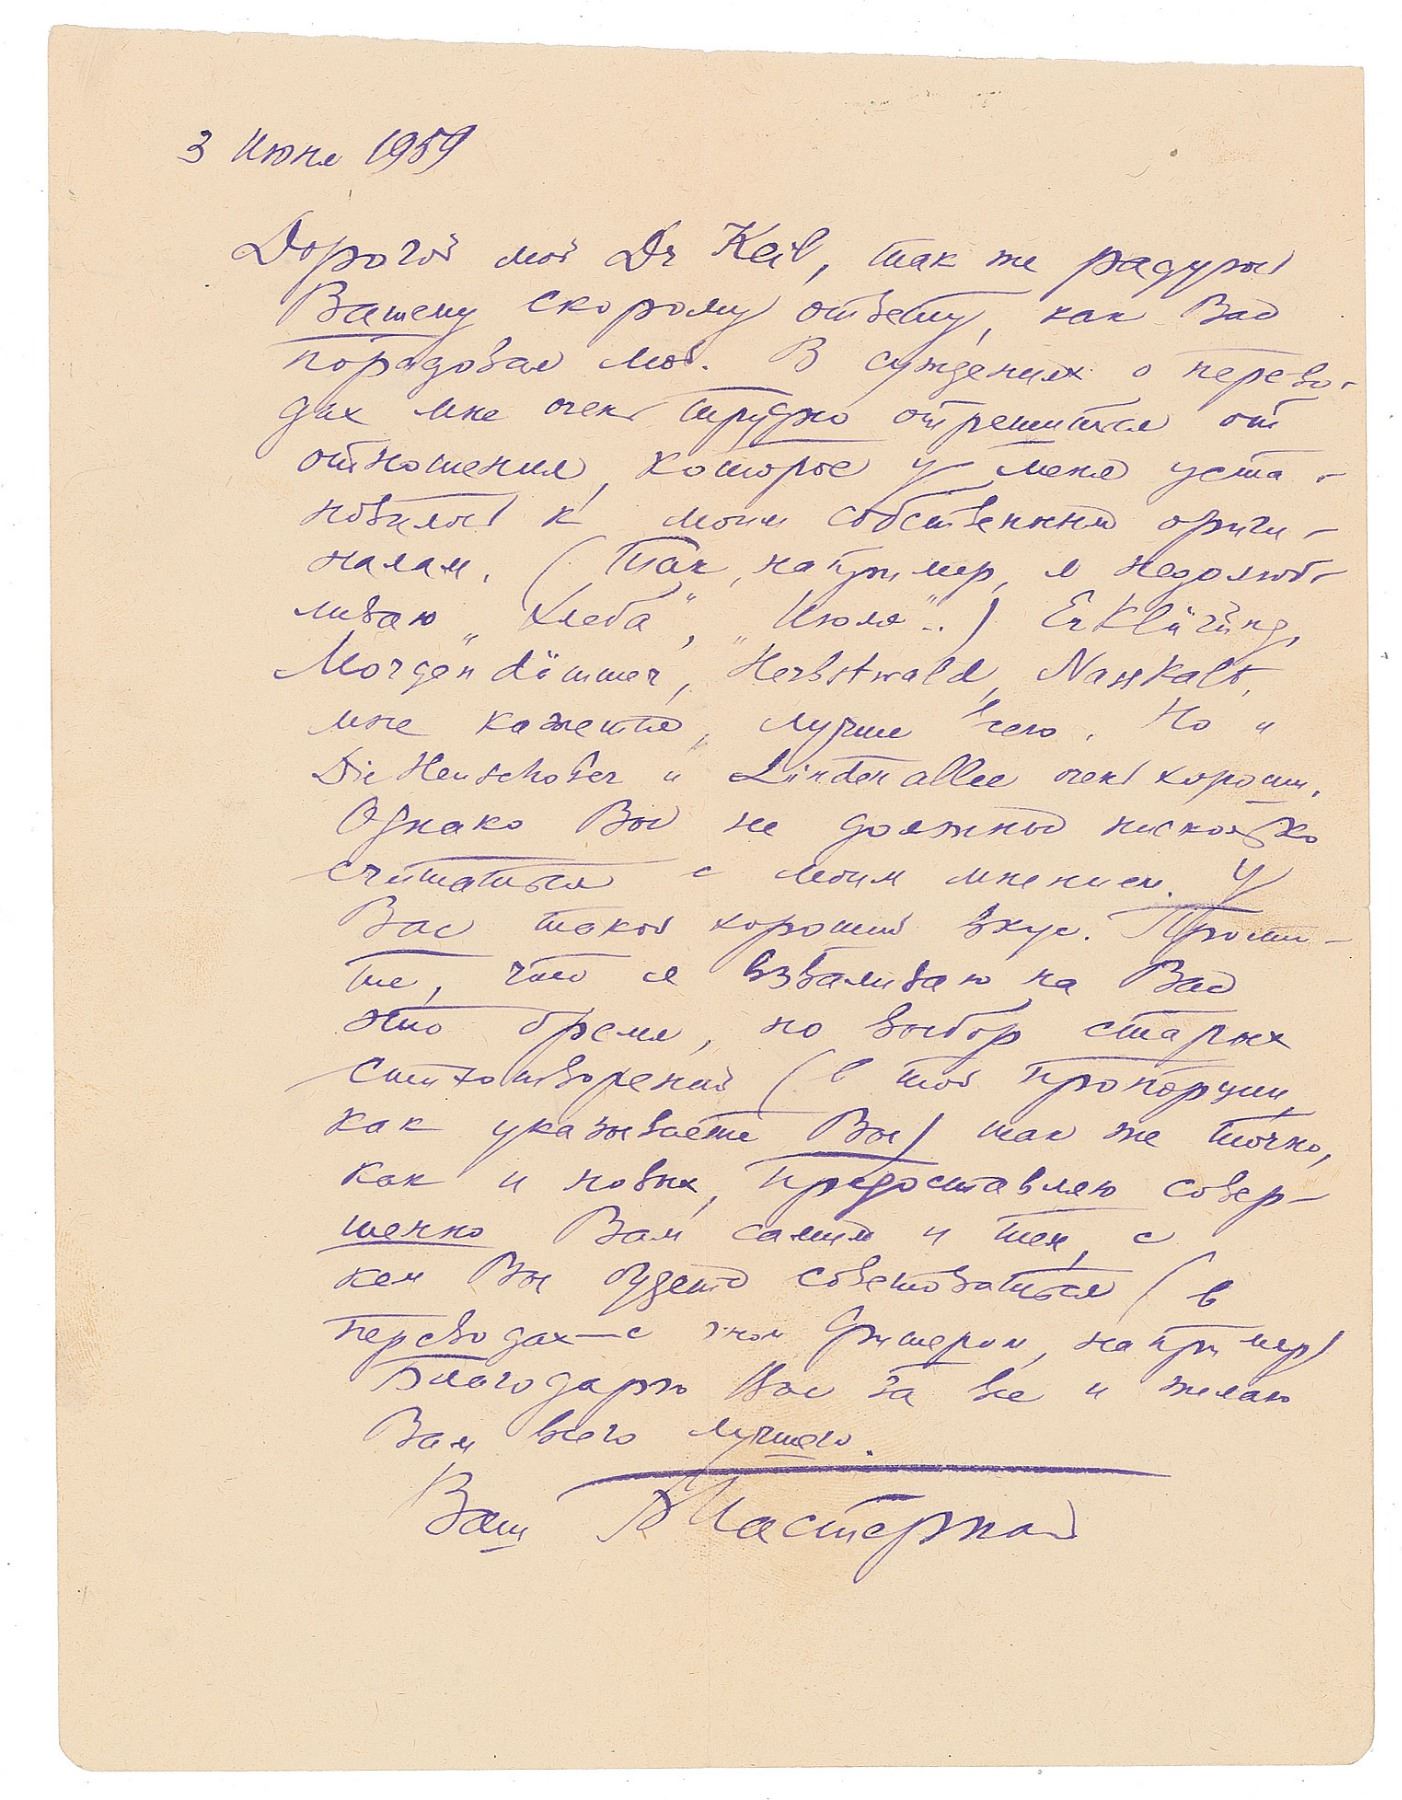 3 Июня 1959
Дорогой мой Dr Keil, так же радуюсь
Вашему скорому ответу, как Вас
порадовал мой. В суждениях о перево-
дах мне очень трудно отрешиться от
отношения, которое у меня уста-
новилось к моим собственным ориги-
налам. (Так, например, я недолюб-
ливаю „Хлеба", „Июля"..) Erklärung,
Morgendämmer, Herbstwald, Nasskalt,
мне кажется, лучше всего. Но и
Die Heuschober и Lindenallee очень хороши.
Однако Вы не должны нисколько
считаться с моим мнением. У
Вас такой хороший вкус. Прости-
те, что я взваливаю на Вас
это бремя, но выбор старых
стихотворений (в той пропорции,
как указываете Вы) так же точно,
как и новых, предоставляю совер-
шенно Вам самим и тем, с
кем Вы будете советоваться (в
переводах—с Фишером, например)
Благодарю Вас за все и желаю
Вам всего лучшего.
Ваш Б Пастернак